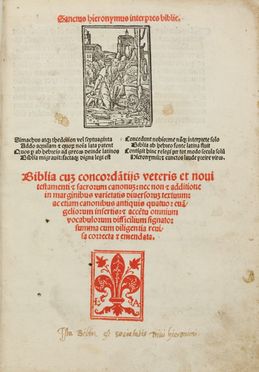 Sanctus hieronymus interpres biblie.
Simachus atq; theodotion vel septuaginta
Addo aquilam et quoꝝ nota luta patent
Quos ꝑ ab hebreis ad grecos deinde latinos
Biblia migrauit: factaq; digna legi est
Concedunt nobisme interprete solo
Biblia ab hebreo fonte latina fluit
Contigit hinc relegi per tot modo secula solus
Hieronymus: cunctos laude preire viros.
Biblia cuz concordātijs veteris et noui
testamenti & sacrorum canonuz: nec non & additione
in marginibus varietatis diuersorūz textuum:
ac etiam canonibus antiquis quatuor euā/
geliorum insertis: & accētu omnium
vocabulorum difficilium signato:
summa cum diligentia reui/
sa correcta & emendata.
L A